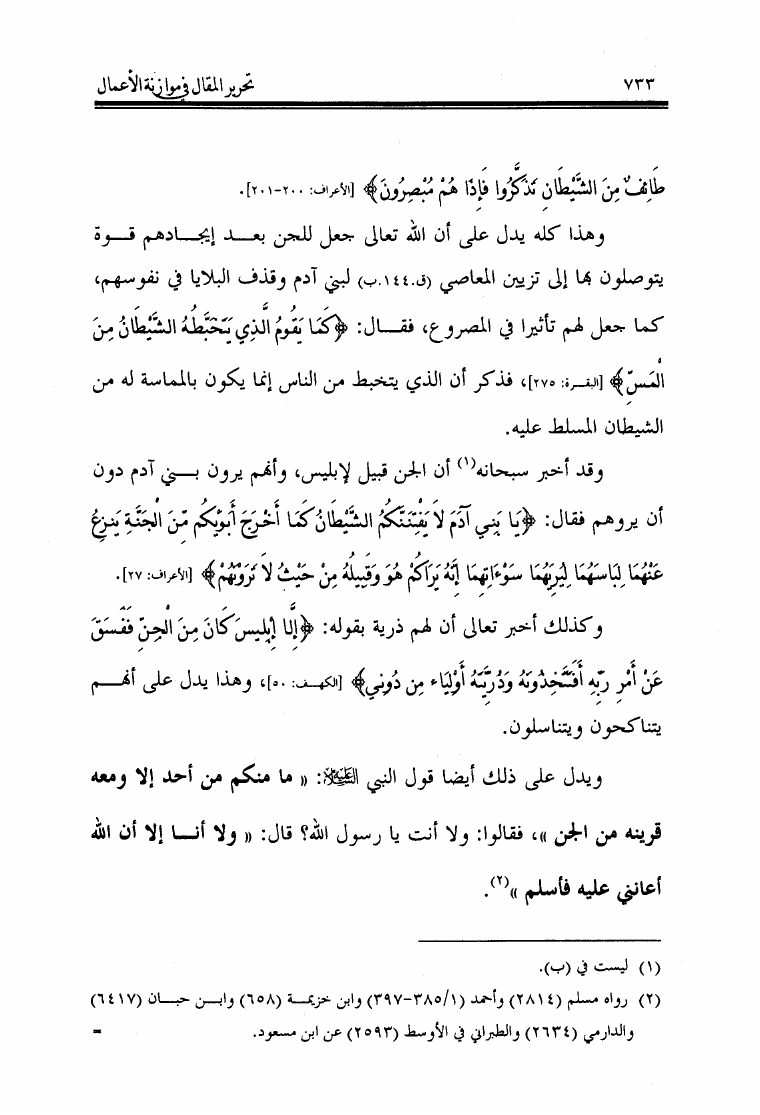 ٧٣٣ تحرير المقال في موازنة الأعمال
طَائِفٌ مِنَ الشَّيْطَانِ تَذَكَّرُوا فَإِذَا هُمْ مُبْصِرُونَ﴾ [الأعراف: ٢٠٠-٢٠١].
وهذا كله يدل على أن الله تعالى جعل للجن بعــد إيجــادهم قــوة
يتوصلون بها إلى تزيين المعاصي (ق.١٤٤.ب) لبني آدم وقذف البلايا في نفوسهم،
كما جعل لهم تأثيرا في المصروع، فقــال: ﴿كَمَا يَقُومُ الَّذِي يَتَخَبَّطُهُ الشَّيْطَانُ مِنَ
الْمَسِّ﴾ [البقــرة: ٢٧٥]، فذكر أن الذي يتخبط من الناس إنما يكون بالمماسة له من
الشيطان المسلط عليه.
وقد أخبر سبحانه(١) أن الجن قبيل لإبليس، وأنهم يرون بــني آدم دون
أن يروهم فقال: ﴿يَا بَنِي آدَمَ لَا يَفْتِنَنَّكُمُ الشَّيْطَانُ كَمَا أَخْرَجَ أَبَوَيْكُم مِّنَ الْجَنَّةِ يَنزِعُ
عَنْهُمَا لِبَاسَهُمَا لِيُرِيَهُمَا سَوْءَاتِهِمَا إِنَّهُ يَرَاكُمْ هُوَ وَقَبِيلُهُ مِنْ حَيْثُ لَا تَرَوْنَهُمْ﴾ [الأعراف: ٢٧].
وكذلك أخبر تعالى أن لهم ذرية بقوله: ﴿إِلَّا إِبْلِيسَ كَانَ مِنَ الْجِنِّ فَفَسَقَ
عَنْ أَمْرِ رَبِّهِ أَفَتَتَّخِذُونَهُ وَذُرِّيَّتَهُ أَوْلِيَاء مِن دُونِي﴾ [الكهــف: ٥٠]، وهذا يدل على أنهــم
يتناكحون ويتناسلون.
ويدل على ذلك أيضا قول النبي ﷺ: « ما منكم من أحد إلا ومعه
قرينه من الجن »، فقالوا: ولا أنت يا رسول الله؟ قال: « ولا أنــا إلا أن الله
أعانني عليه فأسلم »(٢).
(١) ليست في (ب).
(٢) رواه مسلم (٢٨١٤) وأحمد (٣٨٥/١-٣٩٧) وابن خزيمــة (٦٥٨) وابــن حبــان (٦٤١٧)
والدارمي (٢٦٣٤) والطبراني في الأوسط (٢٥٩٣) عن ابن مسعود. =